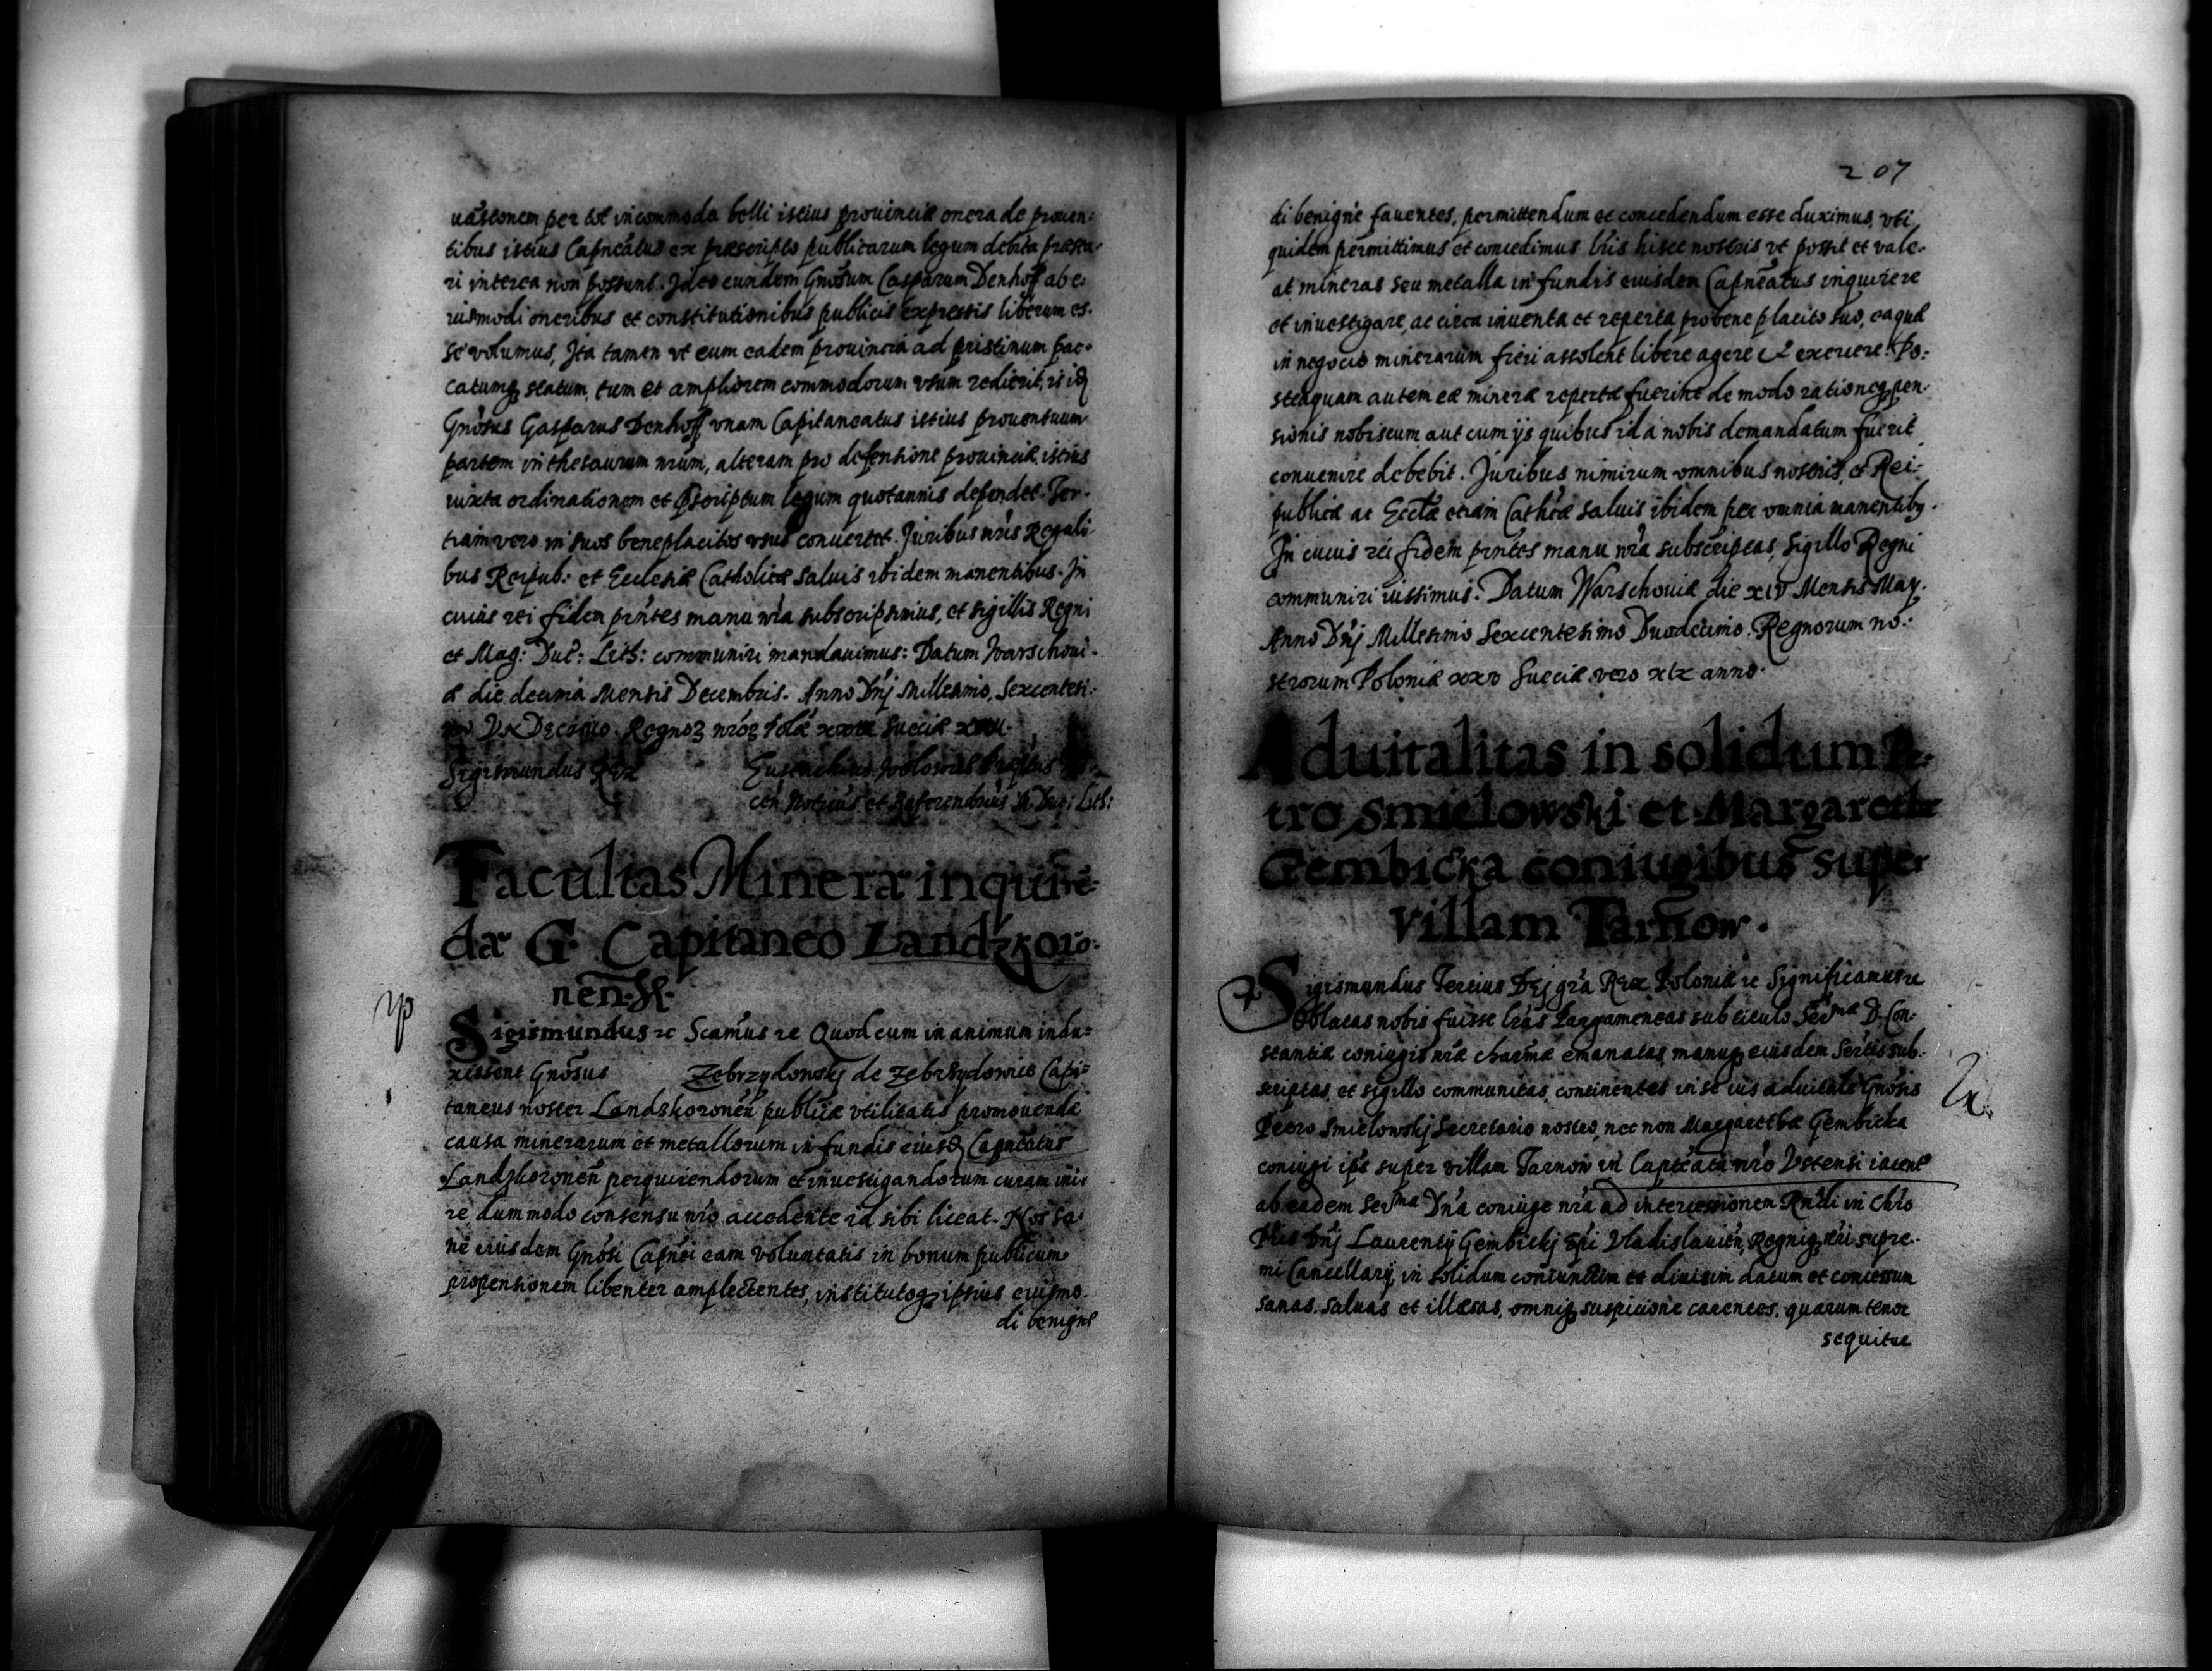 uastonem per tot incommoda belli istius prouinciæ onera de prouen:
tibus istius Capneatus ex præscripto publicarum legum debita præsta:
ri interea non possunt. Ideo eundem Gnosum Casparum Denhoff ab e:
iusmodi oneribus et constitutionibus publicis expressis liberum es:
se volumus, Ita tamen vt cum eadem prouincia ad pristinum pac:
catumq statum, tum et ampliorem commodorum vsum redierit, is idq
Gnosus Gasparus Denhoff, vnam Capitaneatus istius prouentuum
partem in thesaurum nrum, alteram pro defensione prouinciæ istius
iuxta ordinationem et pscriptum legum quotannis dependet. Ter:
tiam vero in suos beneplacitos vsus conuertet. Juribus nris Regali:
bus Reipub: et Ecclesiæ Catholicæ saluis ibidem manentibus. In
cuius rei fidem pntes manu nra subscripsimus, et sigillis Regni
et Mag: Duc: Lith: communiri mandauimus: Datum Warschoui:
æ die decima Mensis Decembris. Anno Dnj Millesimo, Sexcentesi:
mo Vndecimo. Regnoz nroz Polæ Sueciæ
Sigismundus Rex Eustachius Wolowicz
cen Notrius et Referendrius M. Duc: Lith:
Facultas Mineræ inquirē:
dæ G. Capitaneo Landzkoro:
nen:
Sigismundus rc Scamus rc Quod cum in animum indu:
xissent Gnosus Zebrzydowskj de Zebrzydowice Capi:
taneus noster Landskoronen publicæ vtilitatis promouendæ
causa minerarum et metallorum in fundis eiusdq Capneatus
Landzkoronen perquirendorum et inuestigandorum curam ini:
re dummodo consensu nro accedente id sibi liceat. Nos sa:
ne eiusdem Gnosi Capnei eam voluntatis in bonum publicum
propensionem libenter amplectentes, institutoq ipsius eiusmo:
di benigne
207
di benigne fauentes, permittendum et concedendum esse duximus, vti
quidem permittimus et concedimus lris hisce nostris vt possit et vale:
at mineras seu metalla in fundis eiusdem Capneatus inquirere
et inuestigare, ac circa inuenta et reperta pro bene placito suo, ea quæ
in negocio minerarum fieri assolent libere agere et exercere. Po:
steaquam autem eæ mineræ repertæ fuerint de modo rationeq pen:
sionis nobiscum aut cum ijs quibus id a nobis demandatum fuerit
conuenire debebit. Juribus nimirum omnibus nostris, et Rei:
publicæ ac Ecclæ etiam Cathcæ saluis ibidem per omnia manentibq.
In cuius rei fidem pntes manu nra subscriptas, sigillo Regni
communiri iussimus. Datum Warschouiæ die XIV Mensis May.
Anno Dnj Millesimo Sexcentesimo Duodecimo. Regnorum no:
strorum Poloniæ xxv Sueciæ vero xix anno.
Aduitalitas in solidum Pe:
tro Smielowski et Margarethæ
Gembicka coniugibus super
villam Tarnow.
Sigismundus Tertius Dej gra Rex Poloniæ rc Significamus rc
Oblatas nobis fuisse lras Pargameneas sub titulo Ser^ma D. Con:
stantiæ coniugis nræ charmæ emanatas, manuq eiusdem Sertis sub:
scriptas, et sigillo communitas, continentes in se ius aduitale Gnosis
Petro Smielowskj Secretario nostro, nec non Margarethæ Gembicka
coniugi ips super villam Tarnow in Capteatu nro Vstensi iacente
ab eadem Ser^ma Dna coniuge nra ad intercessionem Rndi in Chro
Pris Dnj Laurentij Gembickj Epi Vladislauien, Regniq nri supre:
mi Cancellarij, in solidum coniunctim et diuisim datum et concessum
sanas, saluas et illæsas, omniq suspicione carentes, quarum tenor
sequitur